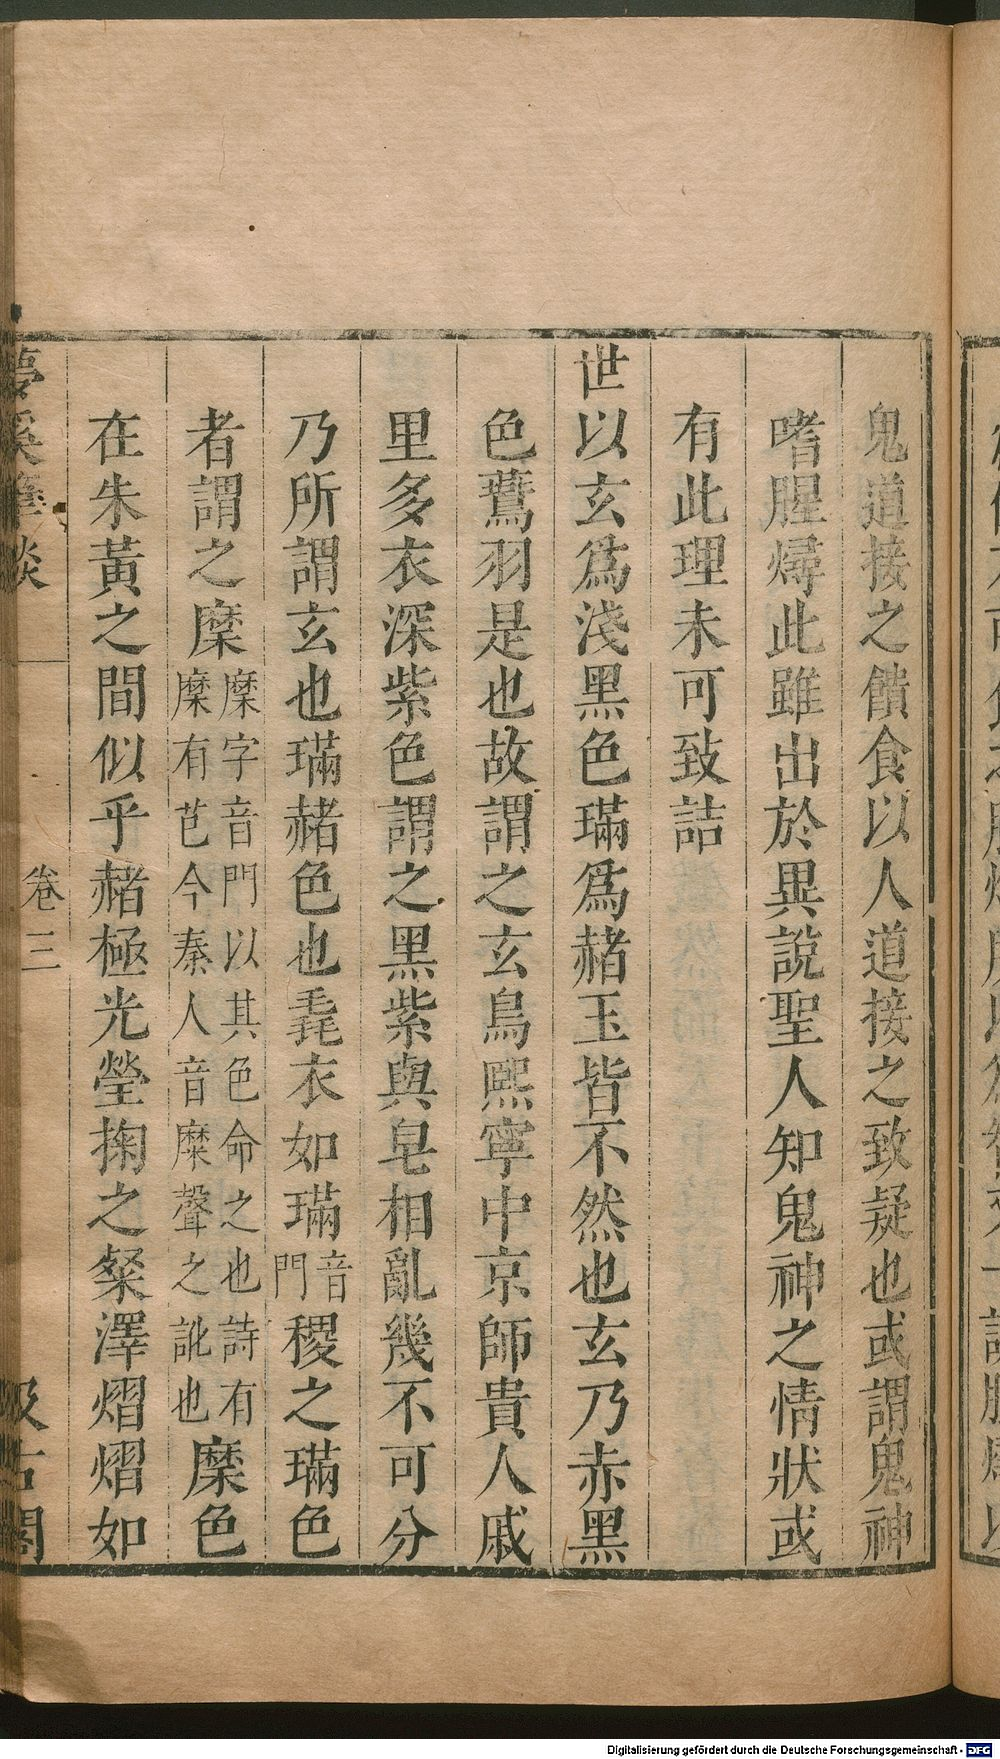 鬼道接之饋食以人道接之致疑也或謂鬼神
嗜腥燖此雖出於異說聖人知鬼神之情狀或
有此理未可致詰
世以玄爲淺黑色璊爲赭玉皆不然也玄乃赤黑
色鷰羽是也故謂之玄鳥熙寧中京師貴人戚
里多衣深紫色謂之黑紫與皂相亂幾不可分
乃所謂玄也璊赭色也毳衣如璊音門稷之璊色
者謂之穈穈字音門以其色命之也詩有穈有芑今秦人音糜聲之訛也穈色
在朱黃之間似乎赭極光瑩掬之粲澤熠熠如
夢溪筆談 卷三 汲古閣
Digitalisierung gefördert durch die Deutsche Forschungsgemeinschaft - DFG